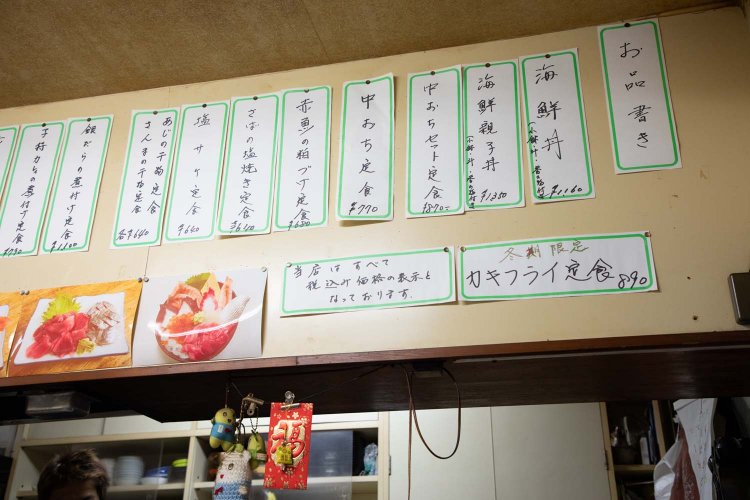 お品書き
海鮮丼
¥1,160
海鮮親子丼
¥1,350
中おちセット定食
¥890-
中おち定食
¥770
赤魚の粕づけ定食
¥680
さばの塩焼き定食
¥640
塩サケ定食
¥640
あじの干物定食
さんまの干物定食
各¥640
銀だらの煮付け定食
¥1,100
子持カレイの煮付け定食
¥790
冬期限定
カキフライ定食 890
当店はすべて
税込み価格の表示と
なっております。
福